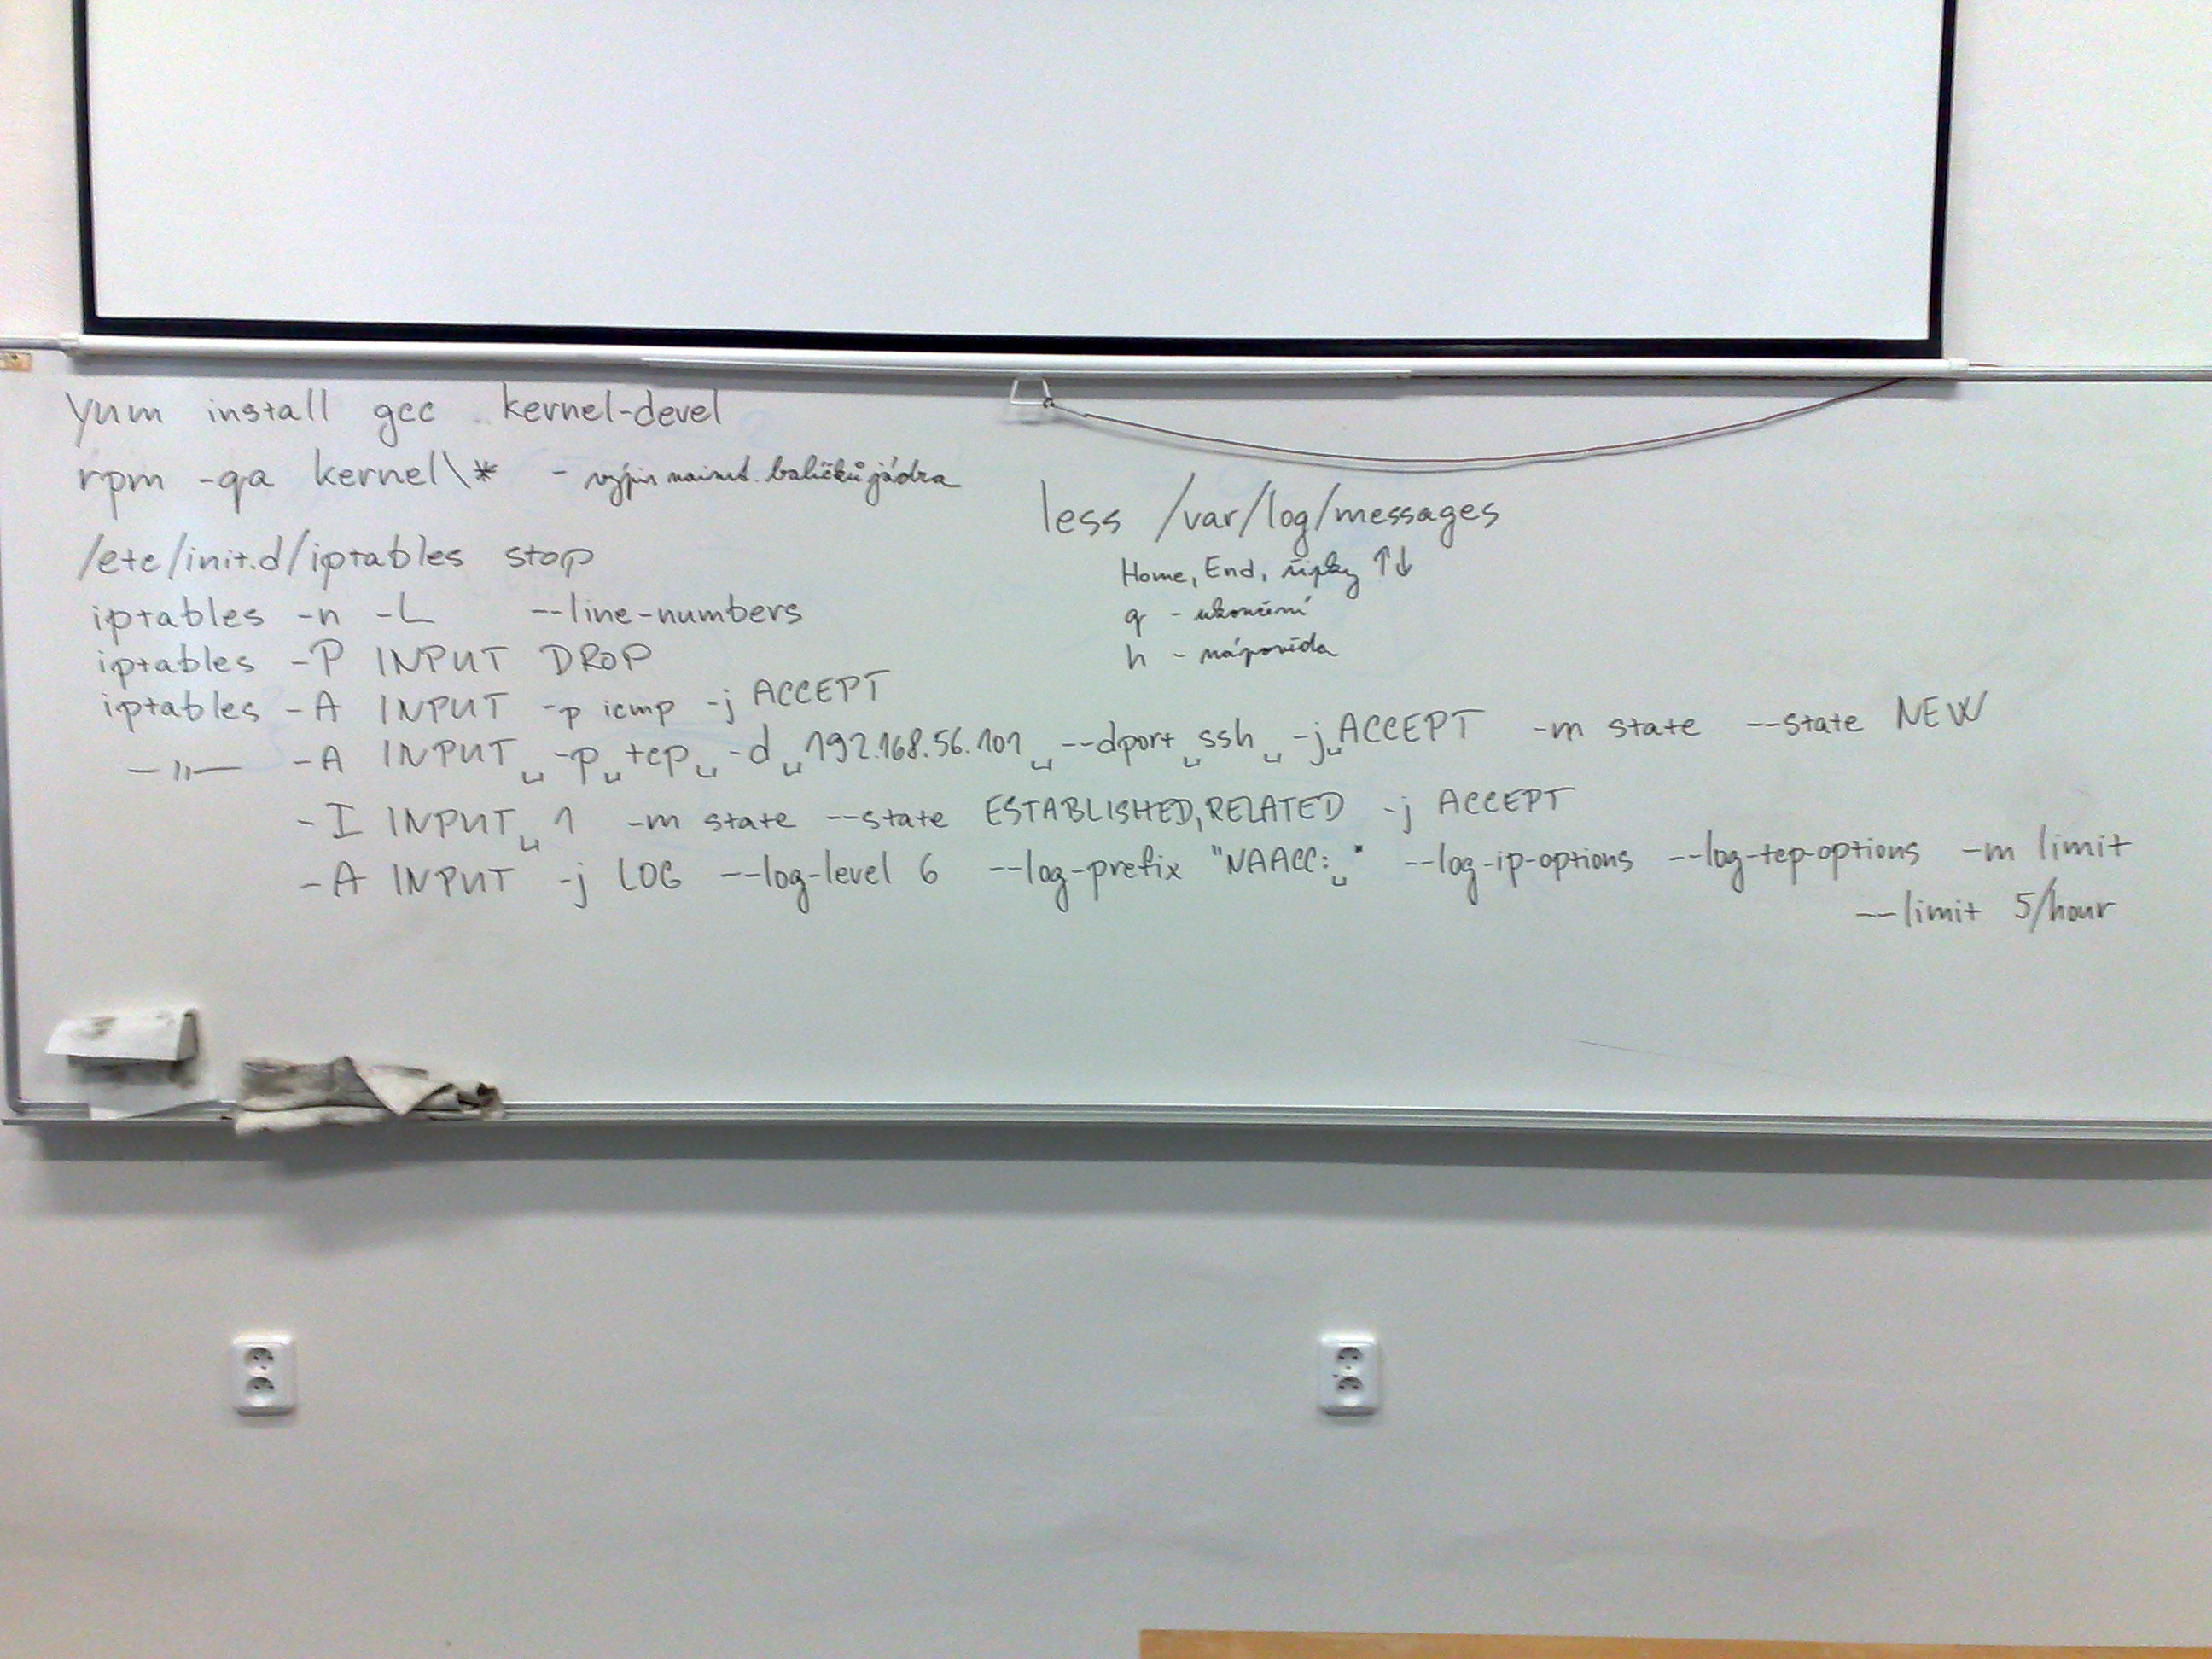 yum install gcc kernel-devel
rpm -qa kernel\* - výpis nainst. balíčků jádra
/etc/init.d/iptables stop
iptables -n -L --line-numbers
iptables -P INPUT DROP
iptables -A INPUT -p icmp -j ACCEPT
—〃— -A INPUT␣-p␣tcp␣-d␣192.168.56.101␣--dport␣ssh␣-j␣ACCEPT -m state --state NEW
-I INPUT␣1 -m state --state ESTABLISHED,RELATED -j ACCEPT
-A INPUT -j LOG --log-level 6 --log-prefix "NAACC:␣" --log-ip-options --log-tcp-options -m limit
--limit 5/hour
less /var/log/messages
Home, End, šipky ↑↓
q - ukončení
h - nápověda